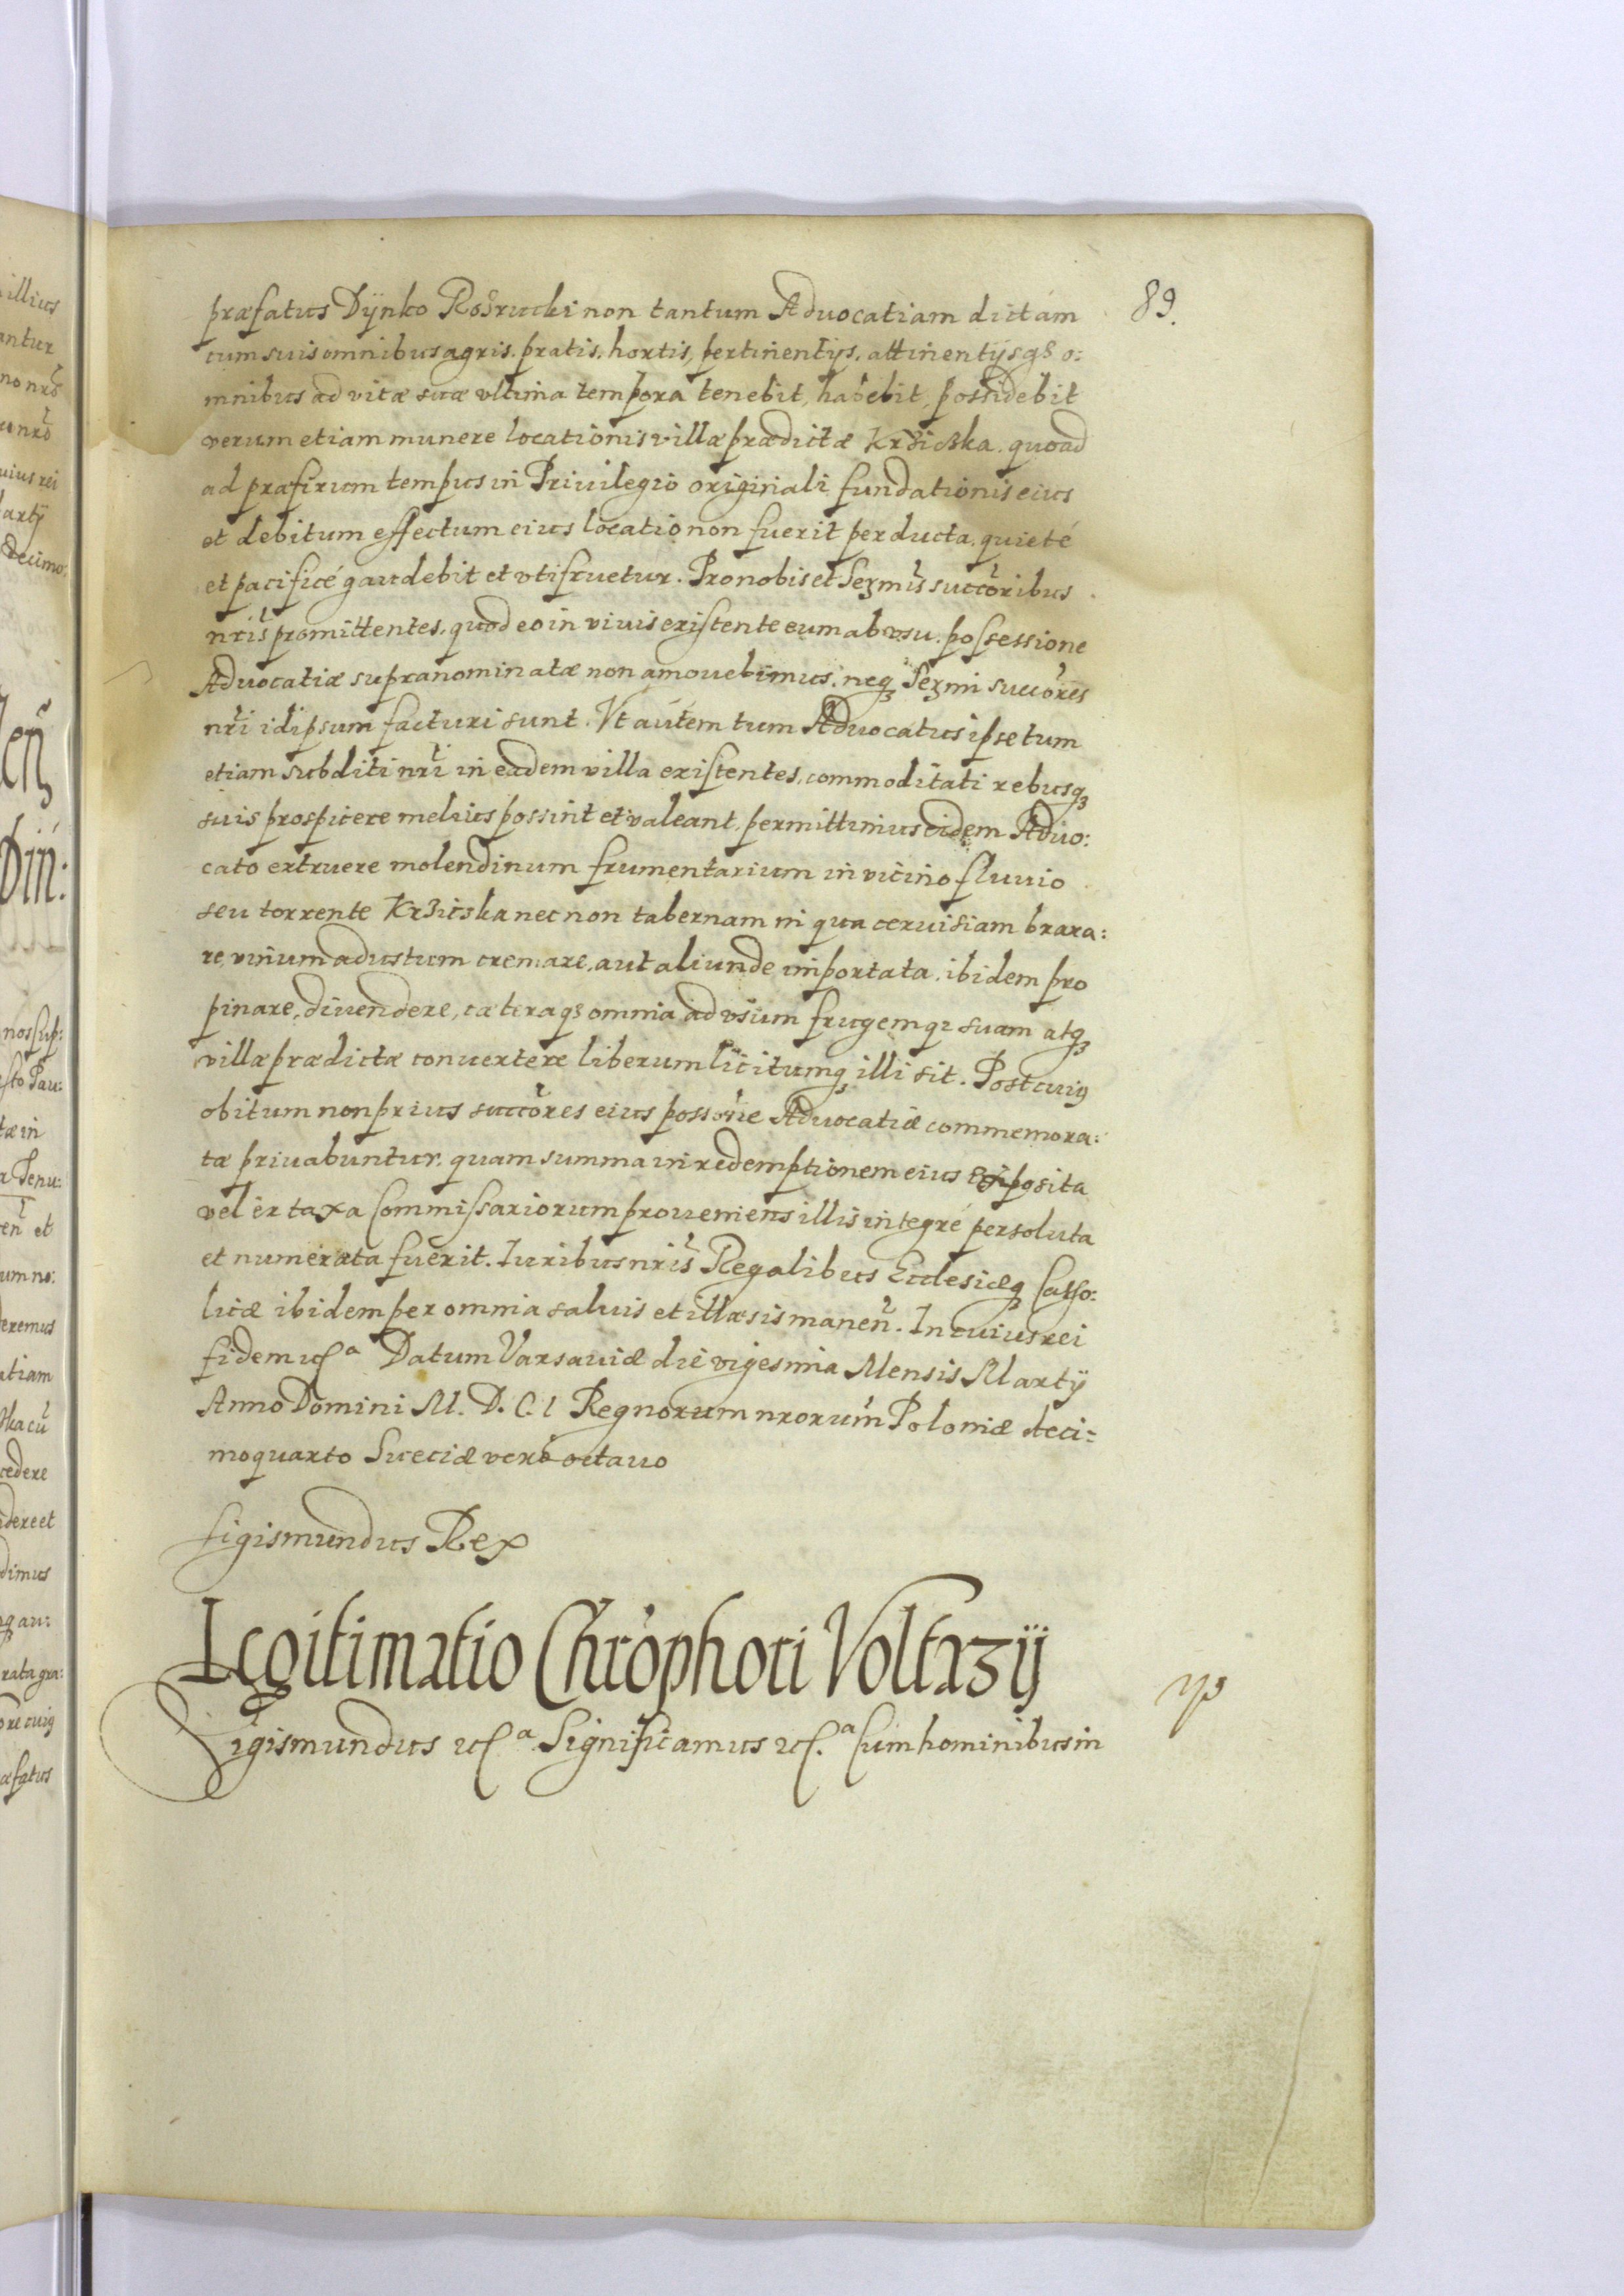 89.
præfatus Dÿnko Rosrucki non tantum Advocatiam dictam
cum suis omnibus agris, pratis, hortis, pertinentÿs, attinentÿsq₃ o:
mnibus ad vitæ suæ vltima tempora tenebit, habebit, possidebit
verum etiam munere locationis villæ prædictæ Krzicska, quoad
ad præfixum tempus in Priuilegio originali fundationis eius
et debitum effectum eius locatio non fuerit perducta, quieté
et pacificé gaudebit et vtifruetur. Pro nobis et Serm̃is succõribus
nr̃is promittentes, quod eo in viuis existente eum ab vsu, possessione
Advocatiæ supranominatæ non amouebimus, neq₃ Serm̃i succõres
nr̃i idipsum facturi sunt. Vt autem tum Advocatus ipse tum
etiam subditi nr̃i in eadem villa existentes, commoditati rebusq₃
suis prospicere melius possint et valeant, permittimus eidem Aduo:
cato extruere molendinum frumentarium in vicino fluuio
seu torrente Krzicska nec non tabernam in qua ceruisiam braxa:
re, vinum adustum cremare, aut aliunde importata, ibidem pro
pinare, diuendere, cæteraq₃ omnia ad vsum frugemq₃ suam atq₃
villæ prædictæ conuertere liberum licitumq₃ illi sit. Post cuiꝰ
obitum non prius succõres eius possõne Advocatiæ commemora:
tæ priuabuntur, quam summa in redemptionem eius exposita
vel ex taxa Commissariorum proueniens illis integré persoluta
et numerata fuerit. Iuribus nr̃is Regalibus Ecclesiæq₃ Catho:
licæ ibidem per omnia saluis et illæsis maneñ. In cuius rei
fidem etcᵃ Datum Varsauiæ die vigesima Mensis Martÿ
Anno Domini M. D. C. I Regnorum nrorum̃ Poloniæ deci:
moquarto Sueciæ veró octauo
Sigismundus Rex
Legitimatio Chrõphori Voltazÿ
Sigismundus etcᵃ Significamus etc.ᵃ Cum hominibus in